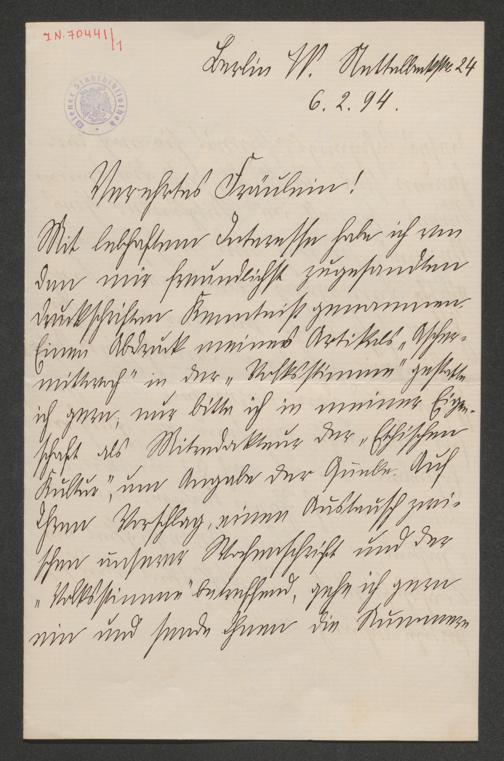 I.N. 70441/1
Wiener Stadtbibliothek
Berlin W. Nettelbeckstr 24
6. 2. 94.
Verehrtes Fräulein!
Mit lebhaftem Interesse habe ich von
den mir freundlichst zugesandten
Druckschriften Kenntniß genommen.
Einen Abdruck meines Artikels „Ascher-
mittwoch" in der „Volksstimme" gestatte
ich gern, nur bitte ich in meiner Eigen-
schaft als Mitredakteur der „Ethischen
Kultur", um Angabe der Quelle. Auf
Ihren Vorschlag, einen Austausch zwi-
schen unserer Wochenschrift und der
„Volksstimme" betreffend, gehe ich gern
ein und sende Ihnen die Nummern